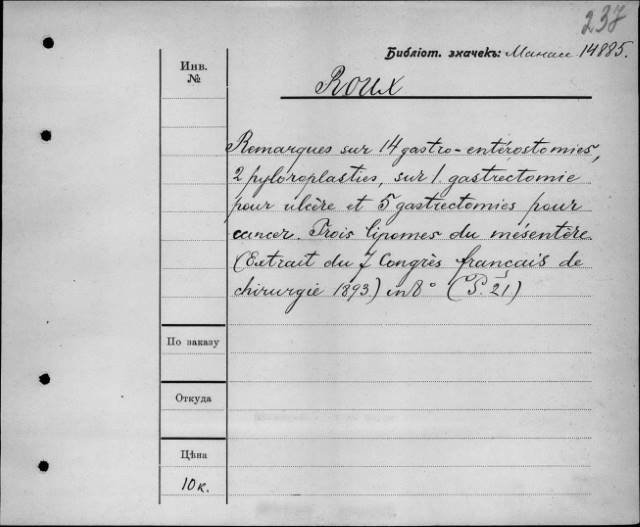 237
Библіот. значекъ: Манасс 14885.
Инв.
№
Roux
Remarques sur 14 gastro-entérostomies,
2 pyloroplasties, sur 1 gastrectomie
pour ulcère et 5 gastrectomies pour
cancer. Trois lipomes du mésentère.
(Extrait du 7 Congrès français de
chirurgie 1893.) in 8° (P. 21)
По заказу
Откуда
Цѣна
10 к.